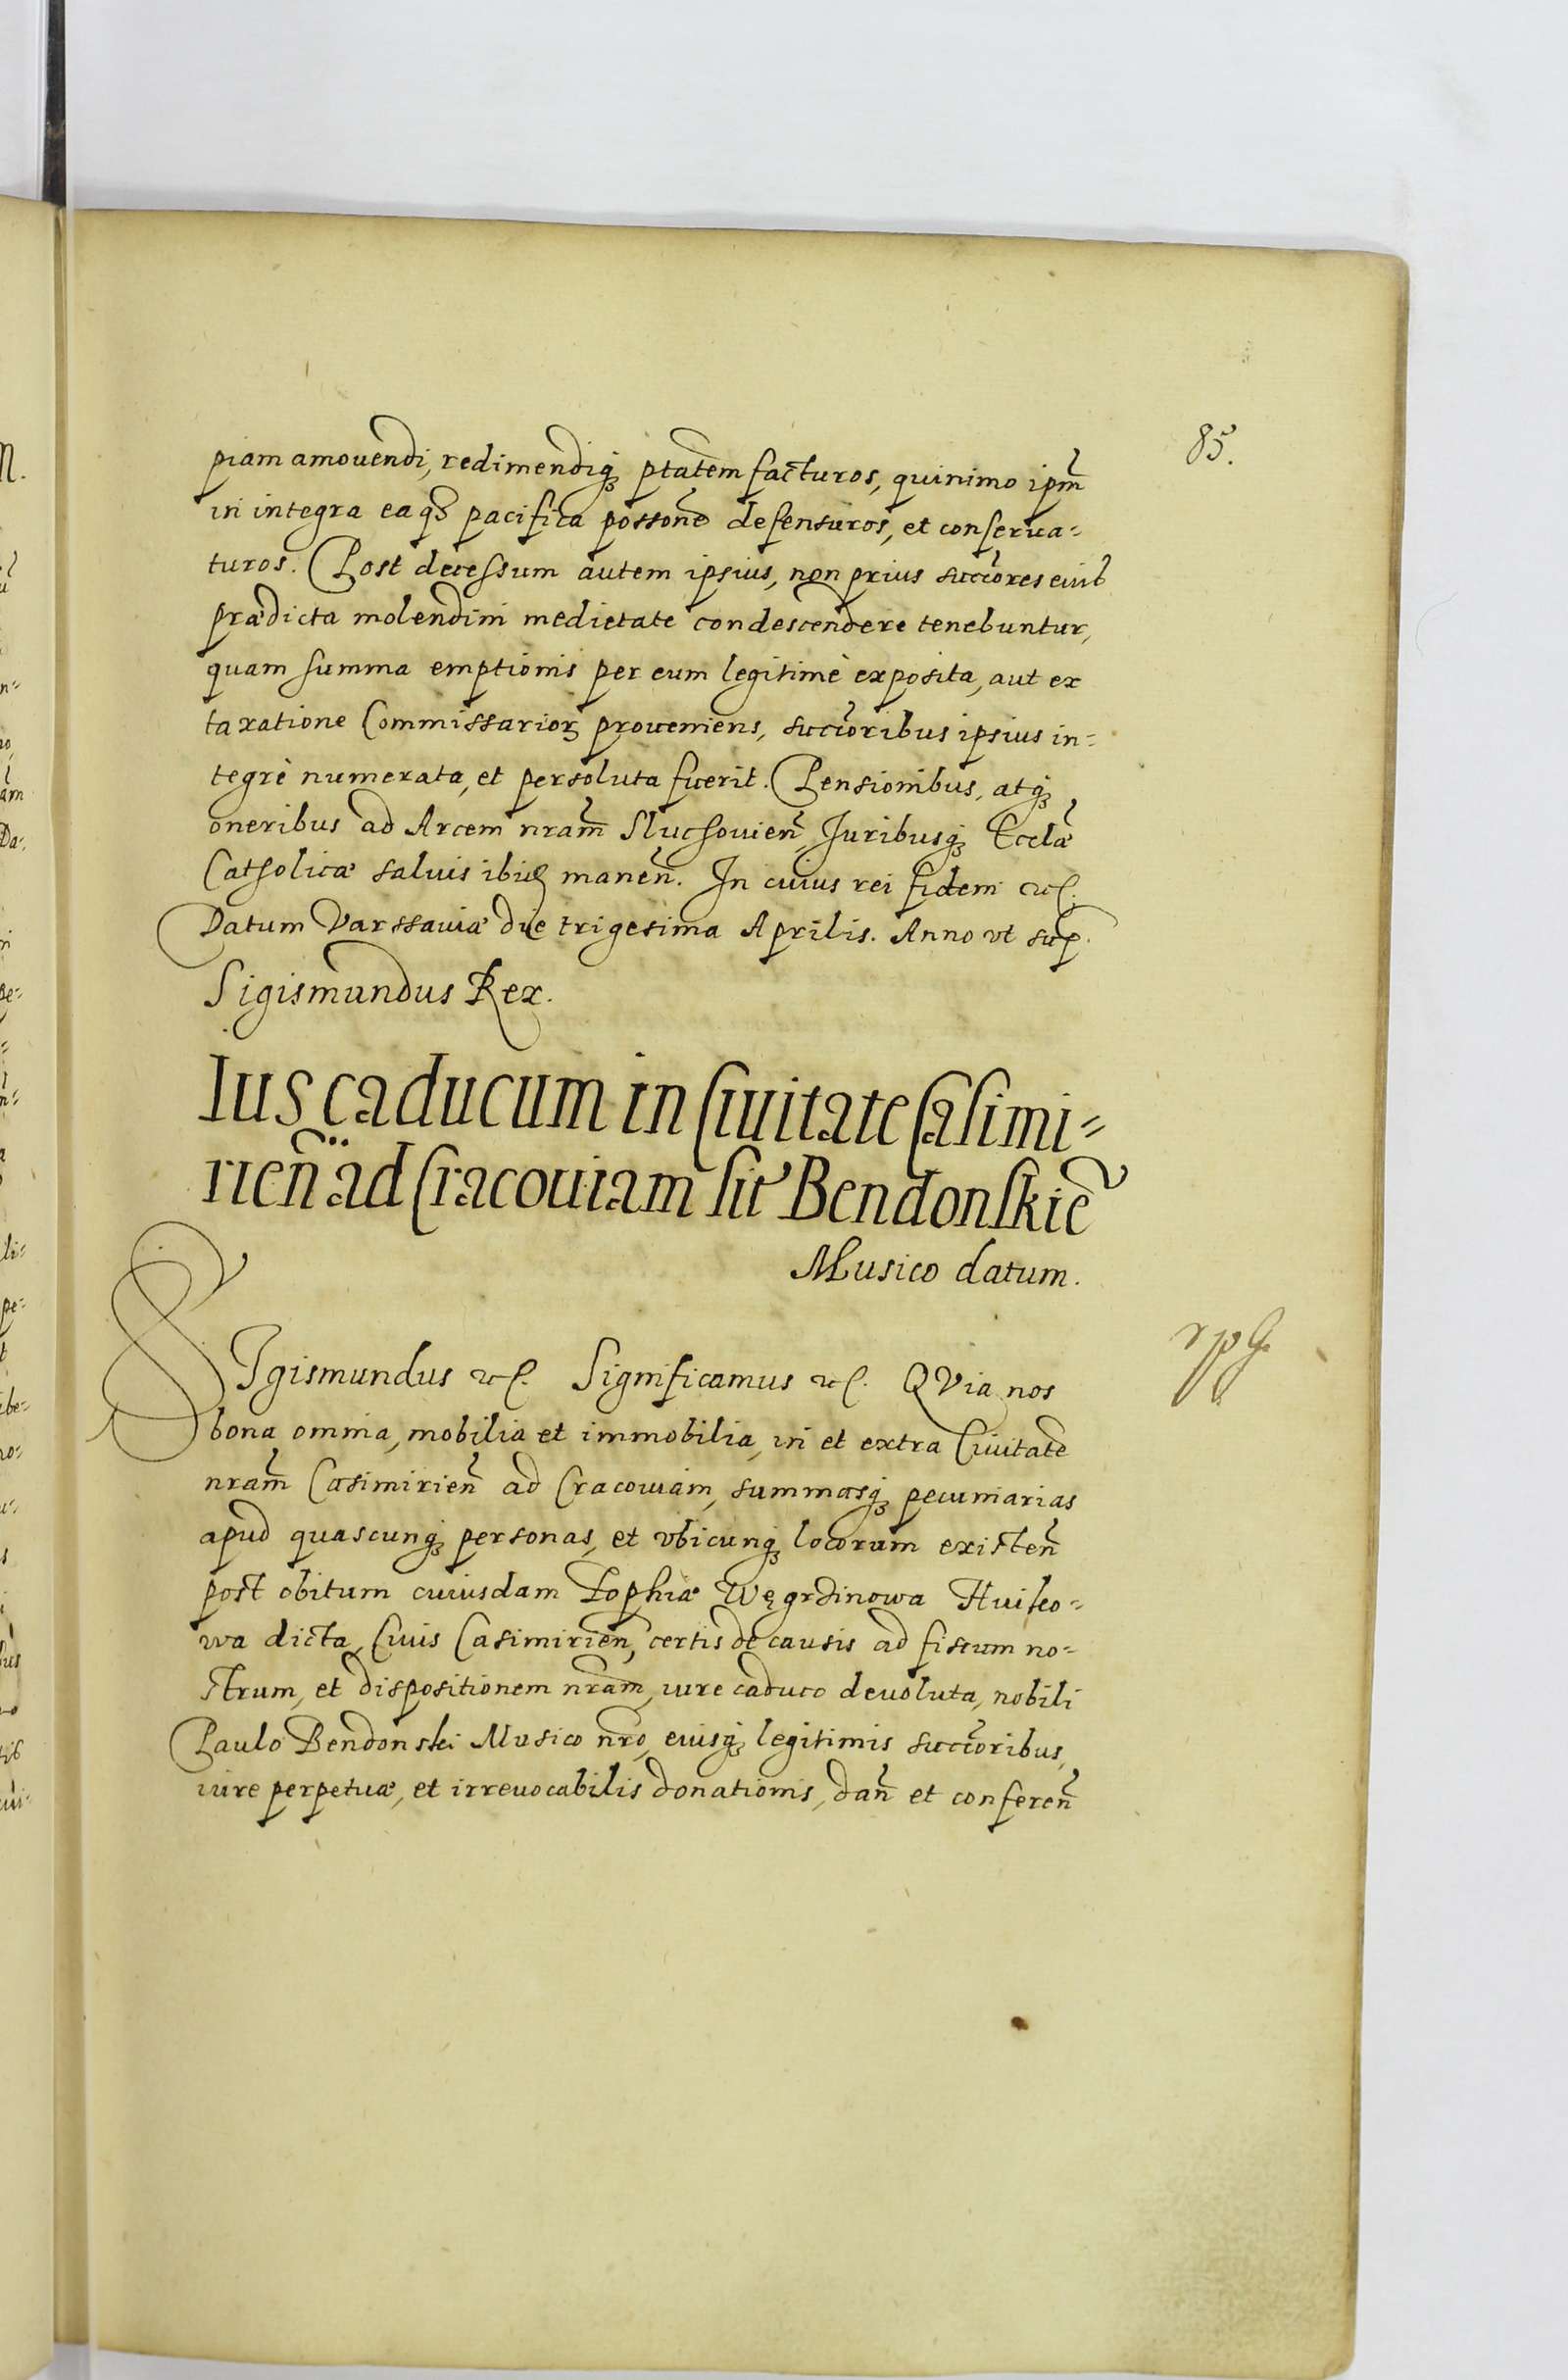 85.
piam amouendi, redimendiq₃ ptatem facturos, quinimo ipm̃
in integra eaq₃ pacifica possone defensuros, et conserua=
turos. Post decessum autem ipsius, non prius succores eius
prædicta molendini medietate condescendere tenebuntur,
quam summa emptionis per eum legitimè exposita, aut ex
taxatione Commissarioꝝ proueniens, succoribus ipsius in=
tegrè numerata, et persoluta fuerit. Pensionibus, atq₃
oneribus ad Arcem nram̃ Sluchouieñ, Juribusq₃ Ecclæ̃
Catholicæ saluis ibid maneñ. In cuius rei fidem etc.
Datum Varssauiæ die trigesima Aprilis. Anno vt sup.
Sigismundus Rex.
Ius caducum in Ciuitate Casimi=
rien̄ ad Cracouiam sit Bendonskie
Musico datum.
SIgismundus etc. Significamus etc. QVia nos
bona omnia, mobilia et immobilia, in et extra Ciuitate
nram̃ Casimirien̄ ad Cracouiam, summasq₃ pecuniarias
apud quascunq₃ personas, et vbicunq₃ locorum existen̄
post obitum cuiusdam Zophiæ Węgrdinowa Huiko=
wa dicta, Ciuis Casimirien̄, certis de causis ad fiscum no=
strum, et dispositionem nram̃, iure caduco deuoluta, nobili
Paulo Bendonski Musico nr̃o, eiusq₃ legitimis succoribus,
iure perpetuæ, et irreuocabilis donationis, dan̄ et conferen̄